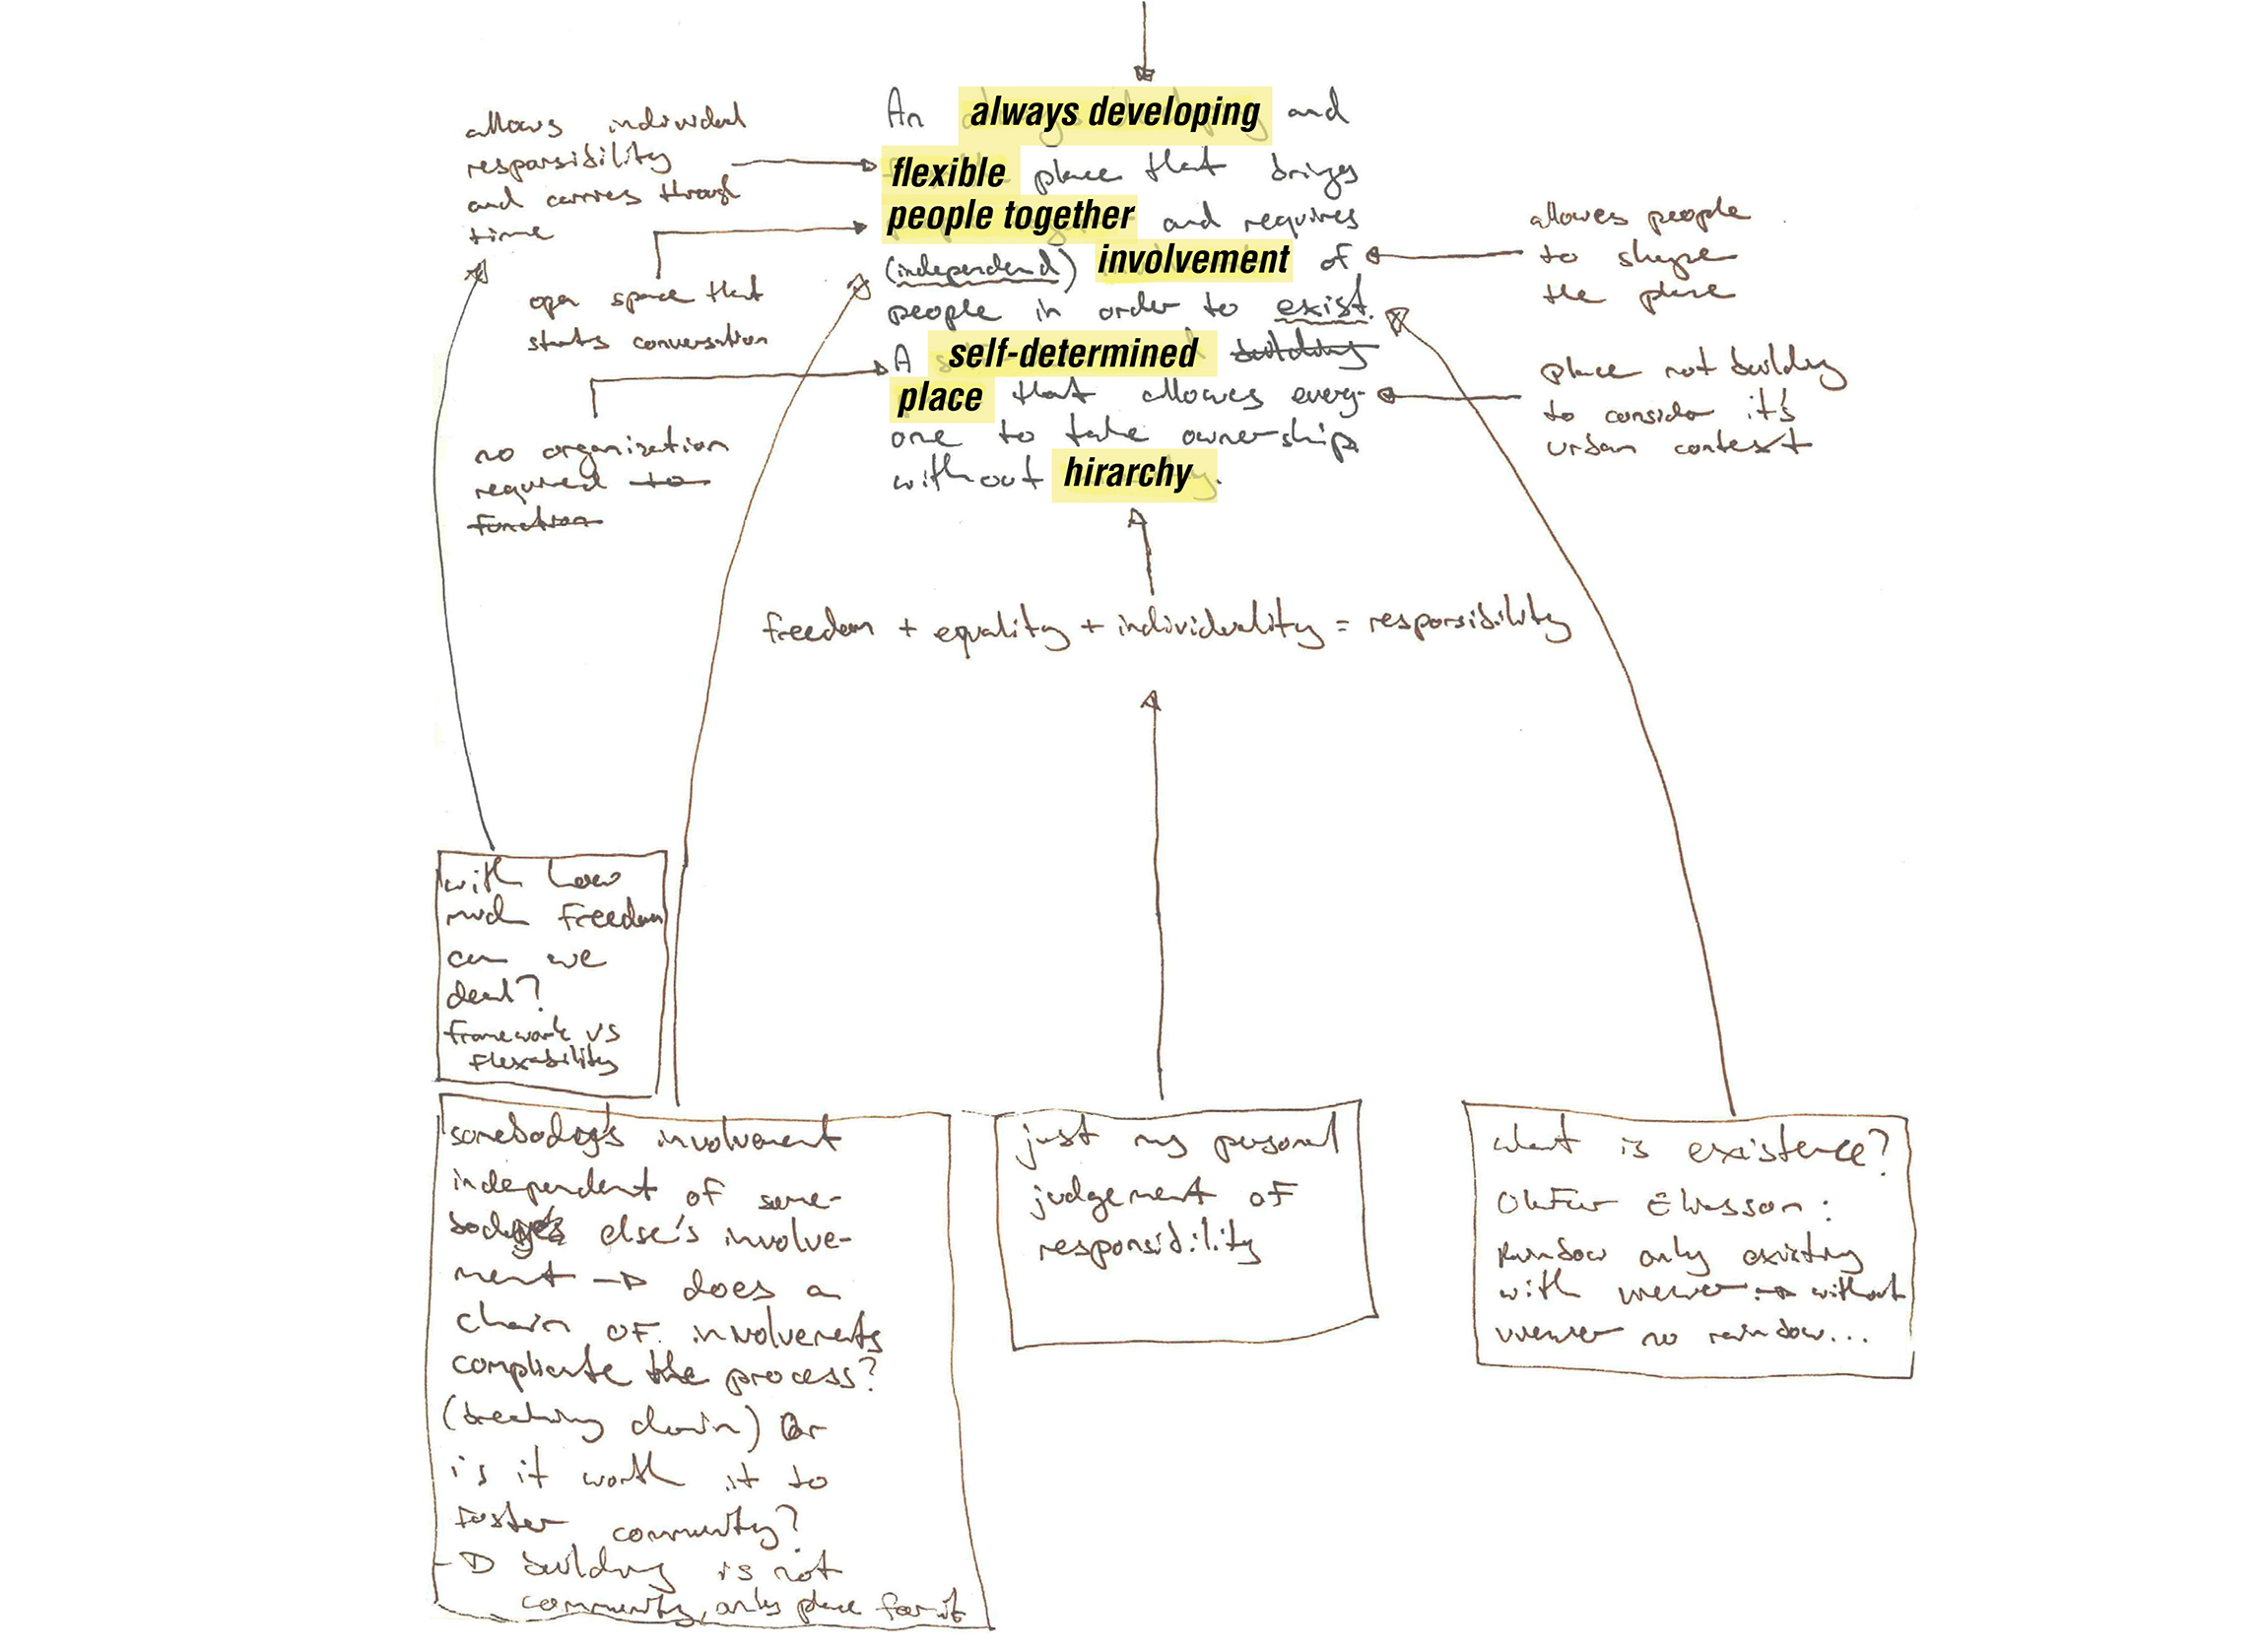 An always developing and
flexible place that brings
people together and requires
(independend) involvement of
people in order to exist.
A self-determined building
place that allowes every-
one to take ownership
without hirarchy.
allows individual
responsibility
and carries through
time
open space that
starts conversation
no organization
required to
function
allowes people
to shape
the place
place not building
to consider it's
urban context
freedom + equality + individuality = responsibility
with how
much freedom
can we
deal?
framework vs
flexability
somebody's involvement
independent of some-
body's else's involve-
ment → does a
chain of involvements
complicate the process?
(breaking chain) Or
is it worth it to
foster community?
→ building is not
community, only place for it
just my personal
judgement of
responsibility
what is existence?
Olafur Eliasson:
Rainbow only existing
with viewer → without
viewer no rainbow...